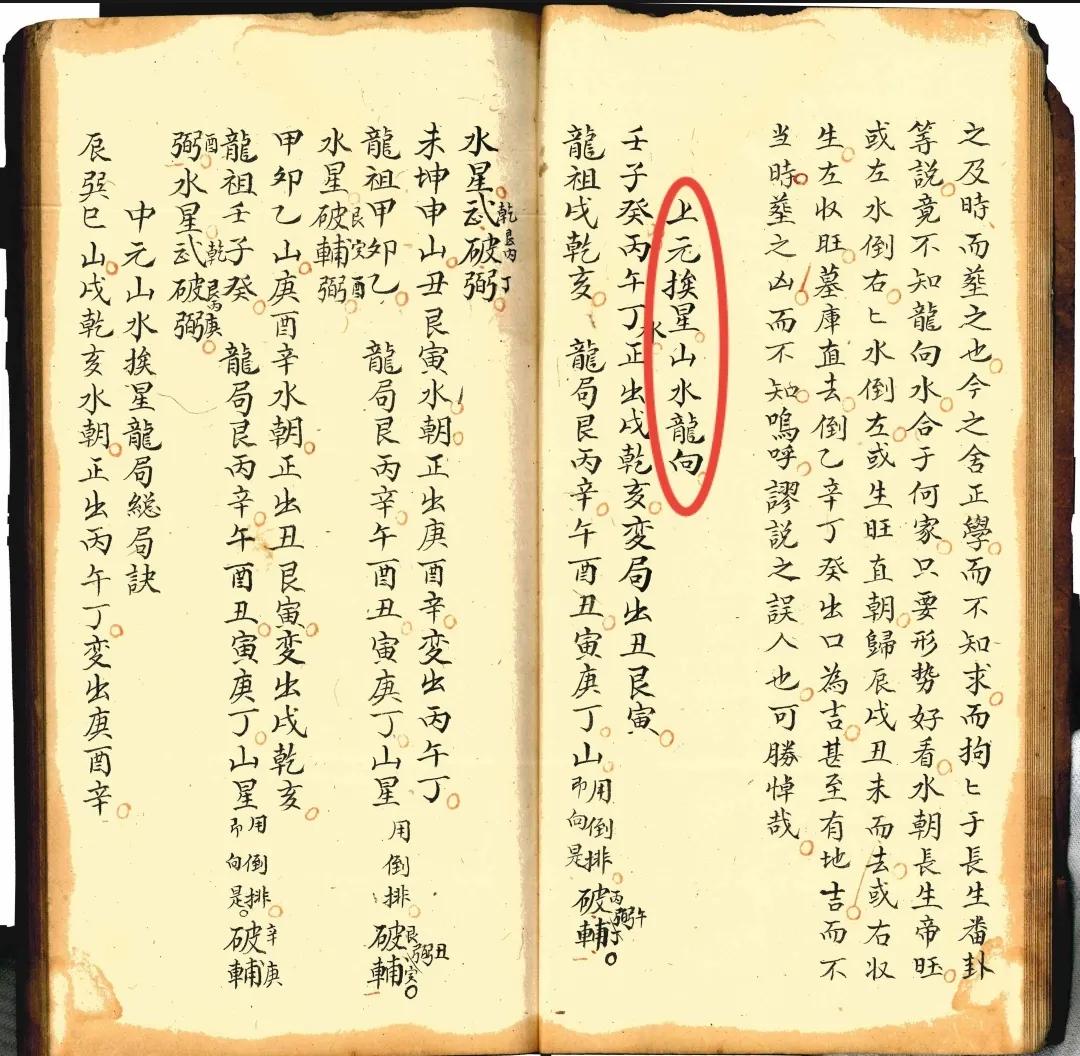 之及時而葬之也今之舍正學而不知求而拘匕于長生番卦
等說竟不知龍向水合于何家只要形势好看水朝長生帝旺
或左水倒右匕水倒左或生旺直朝歸辰戌丑未而去或右收
生左收旺墓庫直去倒乙辛丁癸出口為吉甚至有地吉而不
当時葬之凶而不知嗚呼謬說之誤人也可勝悼哉
上元挨星山水龍向
壬子癸丙午丁水正出戌乾亥変局出丑艮寅
龍祖戌乾亥 龍局艮丙辛午酉丑寅庚丁山用倒排即向是破輔弼丙午丁
水星武破弼乾艮丙丁
未坤申山丑艮寅水朝正出庚酉辛変出丙午丁
龍祖甲卯乙 龍局艮丙辛午酉丑寅庚丁山星用倒排破輔弼艮丑寅
水星破輔弼艮寅酉
甲卯乙山庚酉辛水朝正出丑艮寅変出戌乾亥
龍祖壬子癸 龍局艮丙辛午酉丑寅庚丁山星用倒排即向是破輔辛庚
弼酉水星武破弼乾艮丙庚
中元山水挨星龍局総局訣
辰巽巳山戌乾亥水朝正出丙午丁変出庚酉辛